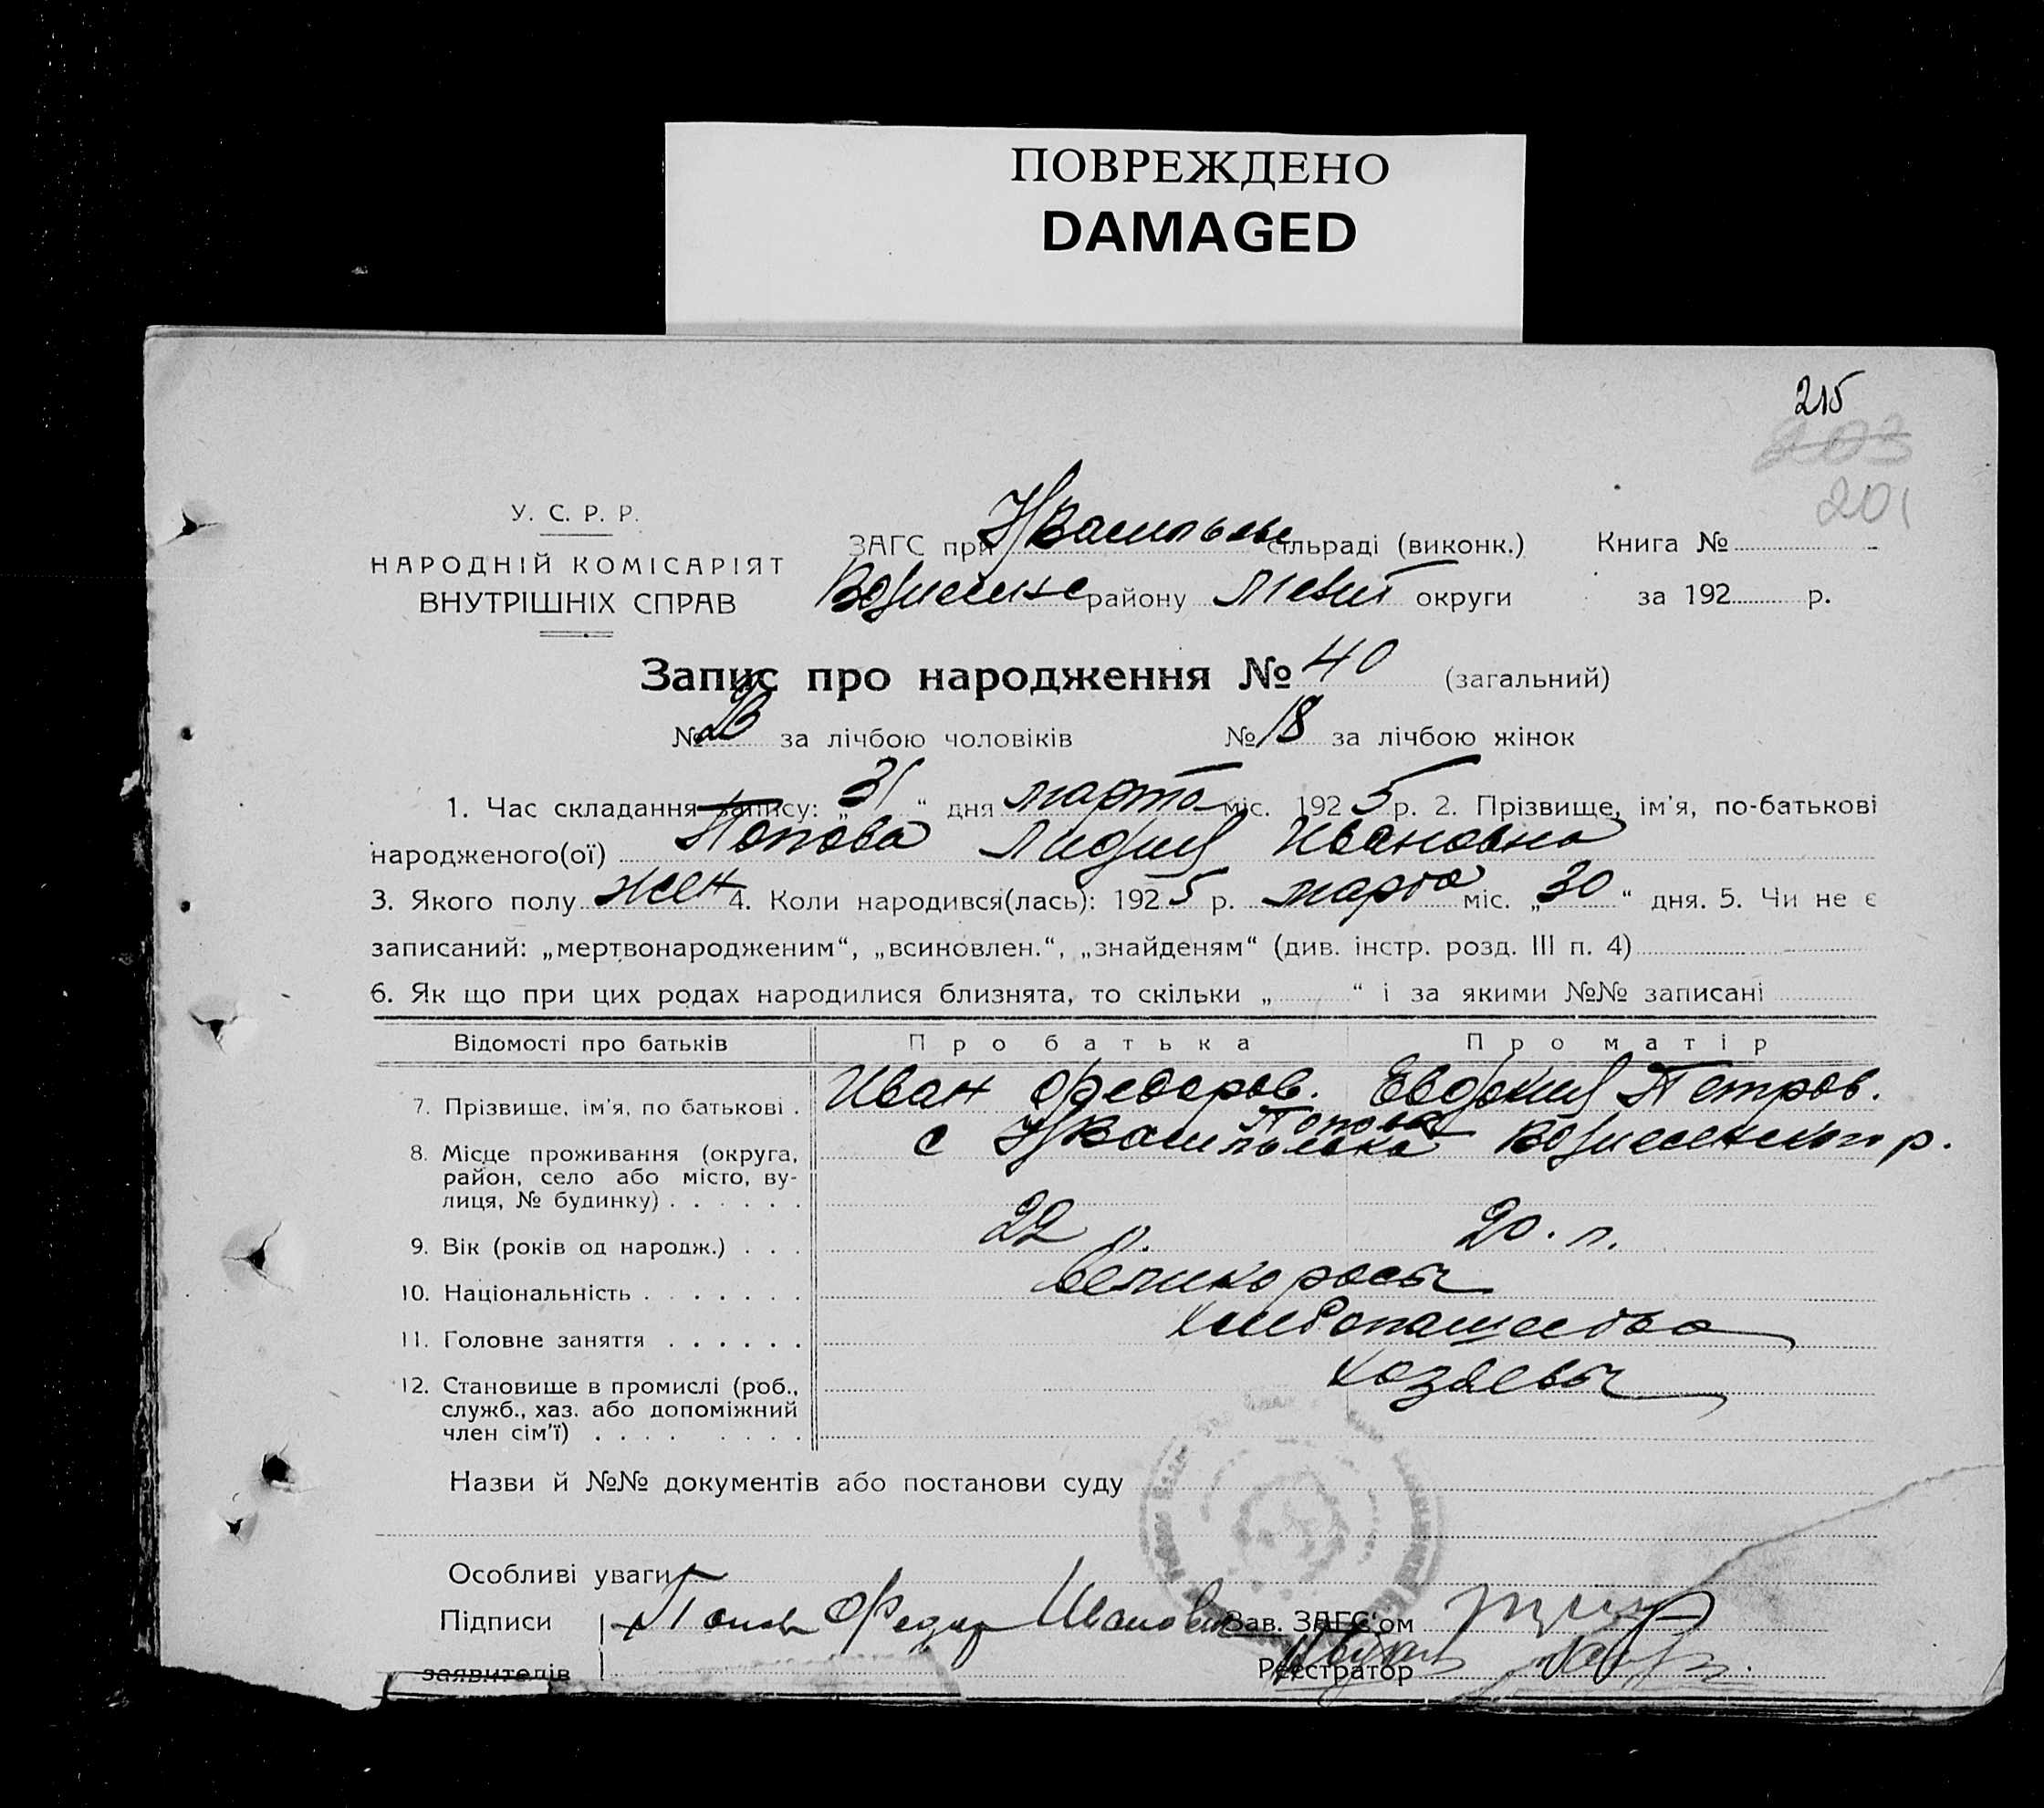 ПОВРЕЖДЕНО
DAMAGED
215
203
201
У. С. Р. Р.
НАРОДНІЙ КОМІСАРІЯТ
ВНУТРІШНІХ СПРАВ
ЗАГС при сільраді (виконк.) Книга №
району Меліт округи за 192 р.
Запис про народження № 40 (загальний)
№ за лічбою чоловіків № 18 за лічбою жінок
1. Час складання запису: „31“ дня марта міс. 1925 р. 2. Прізвище, ім'я, по-батькові
народженого(ої) Попова Лидия Ивановна
3. Якого полу жен 4. Коли народився(лась): 1925 р. марта міс. „30“ дня. 5. Чи не є
записаний: „мертвонародженим“, „всиновлен.“, „знайденям“ (див. інстр. розд. III п. 4)
6. Як що при цих родах народилися близнята, то скільки „ “ і за якими №№ записані
Відомості про батьків Про батька Про матір
7. Прізвище, ім'я, по батькові . Иван Федоров. Евдокия Петров.
Попова
8. Місце проживання (округа, с Вознесенского р.
район, село або місто, ву-
лиця, № будинку) . . . . . .
9. Вік (років од народж.) . . . 22 л. 20. л.
10. Національність . . . . . . . великоросы
11. Головне заняття . . . . . . хлебопашество
12. Становище в промислі (роб., хозяевы
служб., хаз. або допоміжний
член сім'ї) . . . . . . . .
Назви й №№ документів або постанови суду
Особливі уваги
Підписи Попов Федор Иванович Зав. ЗАГС'ом
заявителів Реєстратор